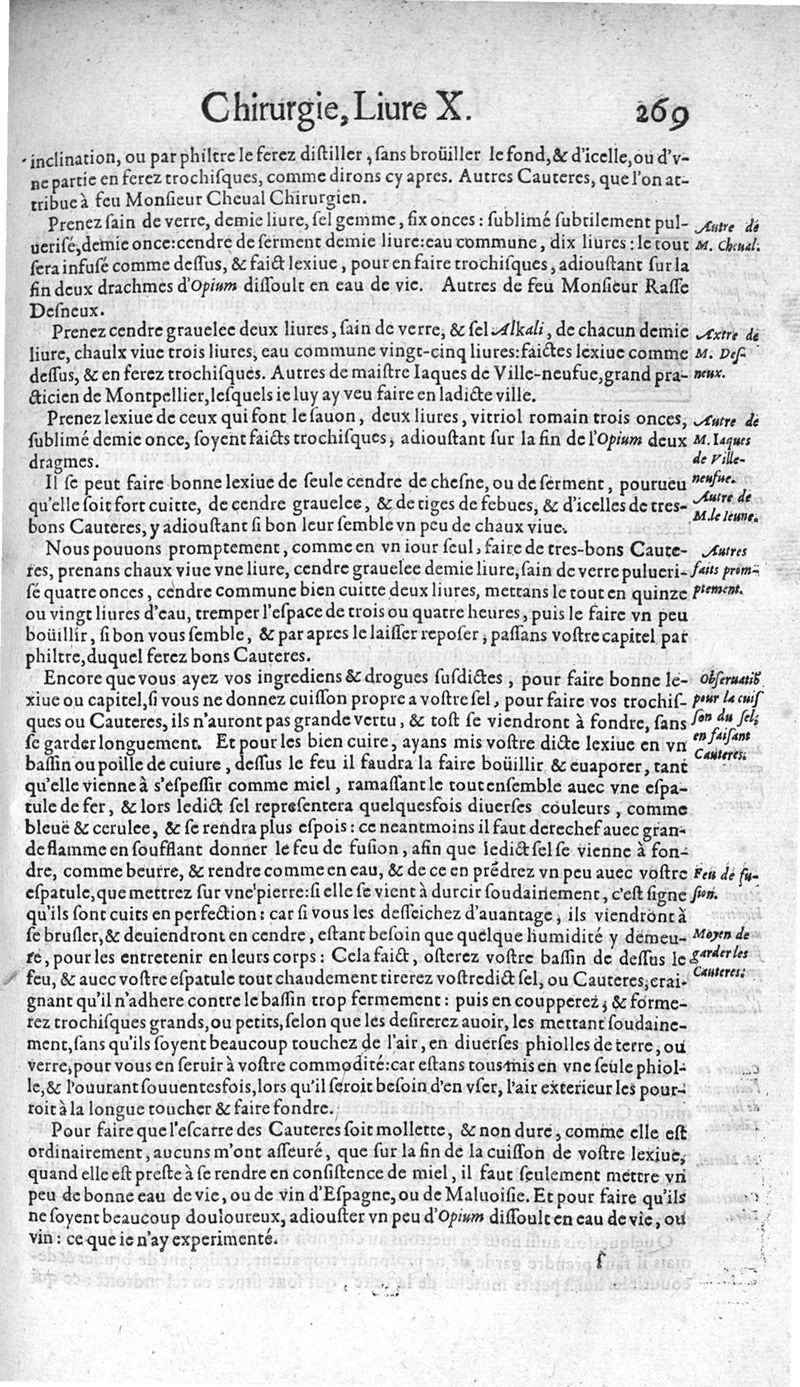 Chirurgie, Liure X. 269
inclination, ou par philtre le ferez distiller, sans broüiller le fond, & d'icelle, ou d'v-
ne partie en ferez trochisques, comme dirons cy apres. Autres Cauteres, que l'on at-
tribue à feu Monsieur Cheual Chirurgien.
Prenez sain de verre, demie liure, sel gemme, six onces: sublimé subtilement pul-
uerisé, demie once: cendre de serment demie liure: eau commune, dix liures: le tout
sera infusé comme dessus, & faict lexiue, pour en faire trochisques, adioustant sur la
fin deux drachmes d'Opium dissoult en eau de vie. Autres de feu Monsieur Rasse
Desneux.
Autre de
M. Cheual.
Prenez cendre grauelee deux liures, sain de verre, & sel Alkali, de chacun demie
liure, chaulx viue trois liures, eau commune vingt-cinq liures: faictes lexiue comme
dessus, & en ferez trochisques. Autres de maistre Iaques de Ville-neufue, grand pra-
cticien de Montpellier, lesquels ie luy ay veu faire en ladicte ville.
Autre de
M. Des-
neux.
Prenez lexiue de ceux qui font le sauon, deux liures, vitriol romain trois onces,
sublimé demie once, soyent faicts trochisques, adioustant sur la fin de l'Opium deux
dragmes.
Autre de
M. Iaques
de Ville-
neufue.
Il se peut faire bonne lexiue de seule cendre de chesne, ou de serment, pourueu
qu'elle soit fort cuitte, de cendre grauelee, & de tiges de febues, & d'icelles de tres-
bons Cauteres, y adioustant si bon leur semble vn peu de chaux viue.
Autre de
M. le Ieune.
Nous pouuons promptement, comme en vn iour seul, faire de tres-bons Caute-
res, prenans chaux viue vne liure, cendre grauelee demie liure, sain de verre pulueri-
sé quatre onces, cendre commune bien cuitte deux liures, mettans le tout en quinze
ou vingt liures d'eau, tremper l'espace de trois ou quatre heures, puis le faire vn peu
boüillir, si bon vous semble, & par apres le laisser reposer, passans vostre capitel par
philtre, duquel ferez bons Cauteres.
Autres
faits prom-
ptement.
Encore que vous ayez vos ingrediens & drogues susdictes, pour faire bonne le-
xiue ou capitel, si vous ne donnez cuisson propre a vostre sel, pour faire vos trochis-
ques ou Cauteres, ils n'auront pas grande vertu, & tost se viendront à fondre, sans
se garder longuement. Et pour les bien cuire, ayans mis vostre dicte lexiue en vn
bassin ou poille de cuiure, dessus le feu il faudra la faire boüillir & euaporer, tant
qu'elle vienne à s'espessir comme miel, ramassant le tout ensemble auec vne espa-
tule de fer, & lors ledict sel representera quelquesfois diuerses couleurs, comme
bleuë & cerulee, & se rendra plus espois: ce neantmoins il faut derechef auec gran-
de flamme en soufflant donner le feu de fusion, afin que ledict sel se vienne à fon-
dre, comme beurre, & rendre comme en eau, & de ce en prēdrez vn peu auec vostre
espatule, que mettrez sur vne pierre: si elle se vient à durcir soudainement, c'est signe
qu'ils sont cuits en perfection: car si vous les desseichez d'auantage, ils viendront à
se brusler, & deuiendront en cendre, estant besoin que quelque humidité y demeu-
re, pour les entretenir en leurs corps: Cela faict, osterez vostre bassin de dessus le
feu, & auec vostre espatule tout chaudement tirerez vostredict sel, ou Cauteres, crai-
gnant qu'il n'adhere contre le bassin trop fermement: puis en coupperez, & forme-
rez trochisques grands, ou petits, selon que les desirerez auoir, les mettant soudaine-
ment, sans qu'ils soyent beaucoup touchez de l'air, en diuerses phiolles de terre, ou
verre, pour vous en seruir à vostre commodité: car estans tous mis en vne seule phiol-
le, & l'ouurant souuentesfois, lors qu'il seroit besoin d'en vser, l'air exterieur les pour-
roit à la longue toucher & faire fondre.
Obseruatiō
pour la cuis
son du sel,
en faisant
Cauteres.
Feu de fu-
sion.
Moyen de
garder les
Cauteres.
Pour faire que l'escarre des Cauteres soit mollette, & non dure, comme elle est
ordinairement, aucuns m'ont asseuré, que sur la fin de la cuisson de vostre lexiue,
quand elle est preste à se rendre en consistence de miel, il faut seulement mettre vn
peu de bonne eau de vie, ou de vin d'Espagne, ou de Maluoisie. Et pour faire qu'ils
ne soyent beaucoup douloureux, adiouster vn peu d'Opium dissoult en eau de vie, ou
vin: ce que ie n'ay experimenté.
f